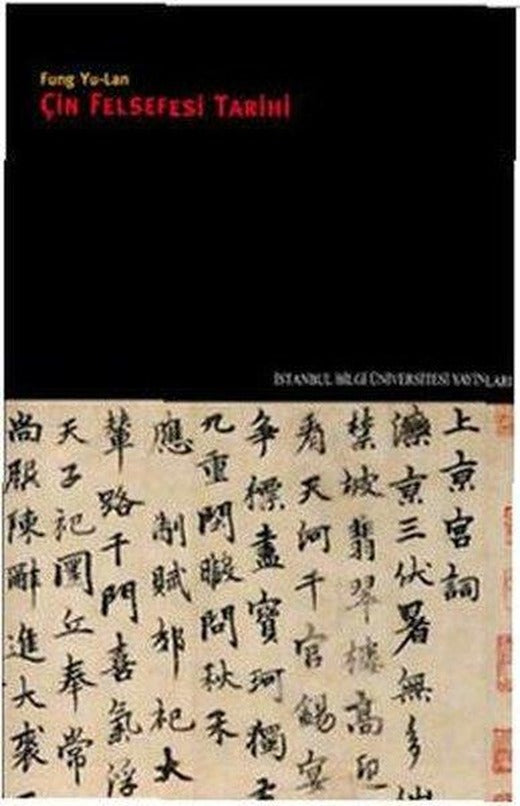 Fung Yu-Lan
ÇİN FELSEFESİ TARİHİ
İSTANBUL BİLGİ ÜNİVERSİTESİ YAYINLARI
上京宮詞
灤京三伏暑無多
禁坡翡翠樓高
看天河千官錫宴
爭標盡寶珂獨
九重閶問秋禾
應制賦郊祀大
輦路千門喜氣浮
天子祀圜丘奉常
尚服陳辭進大裘